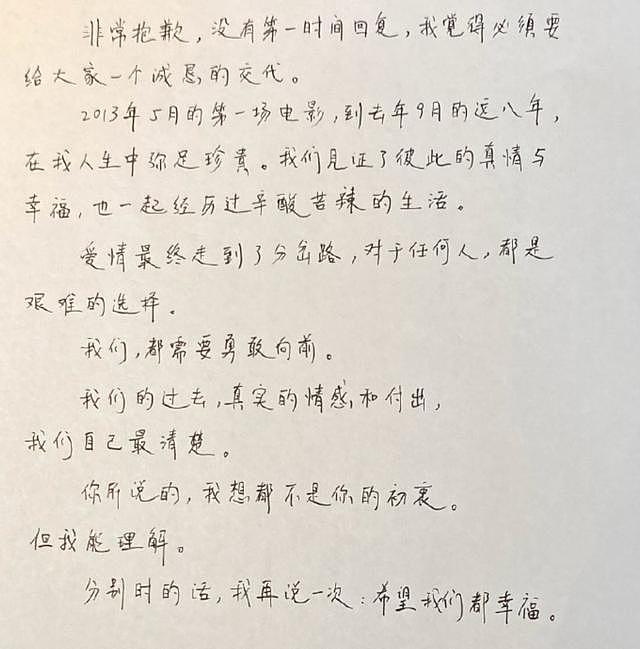 非常抱歉，没有第一时间回复，我覺得必须要
给大家一个诚恳的交代。
2013年5月的第一场电影，到去年9月的这八年，
在我人生中弥足珍貴。我们见证了彼此的真情与
幸福，也一起经历过辛酸苦辣的生活。
爱情最终走到了分岔路，对于任何人，都是
艰难的选择。
我们，都需要勇敢向前。
我们的过去，真实的情感和付出，
我们自己最清楚。
你所说的，我想都不是你的初衷。
但我能理解。
分别时的话，我再说一次：希望我们都幸福。